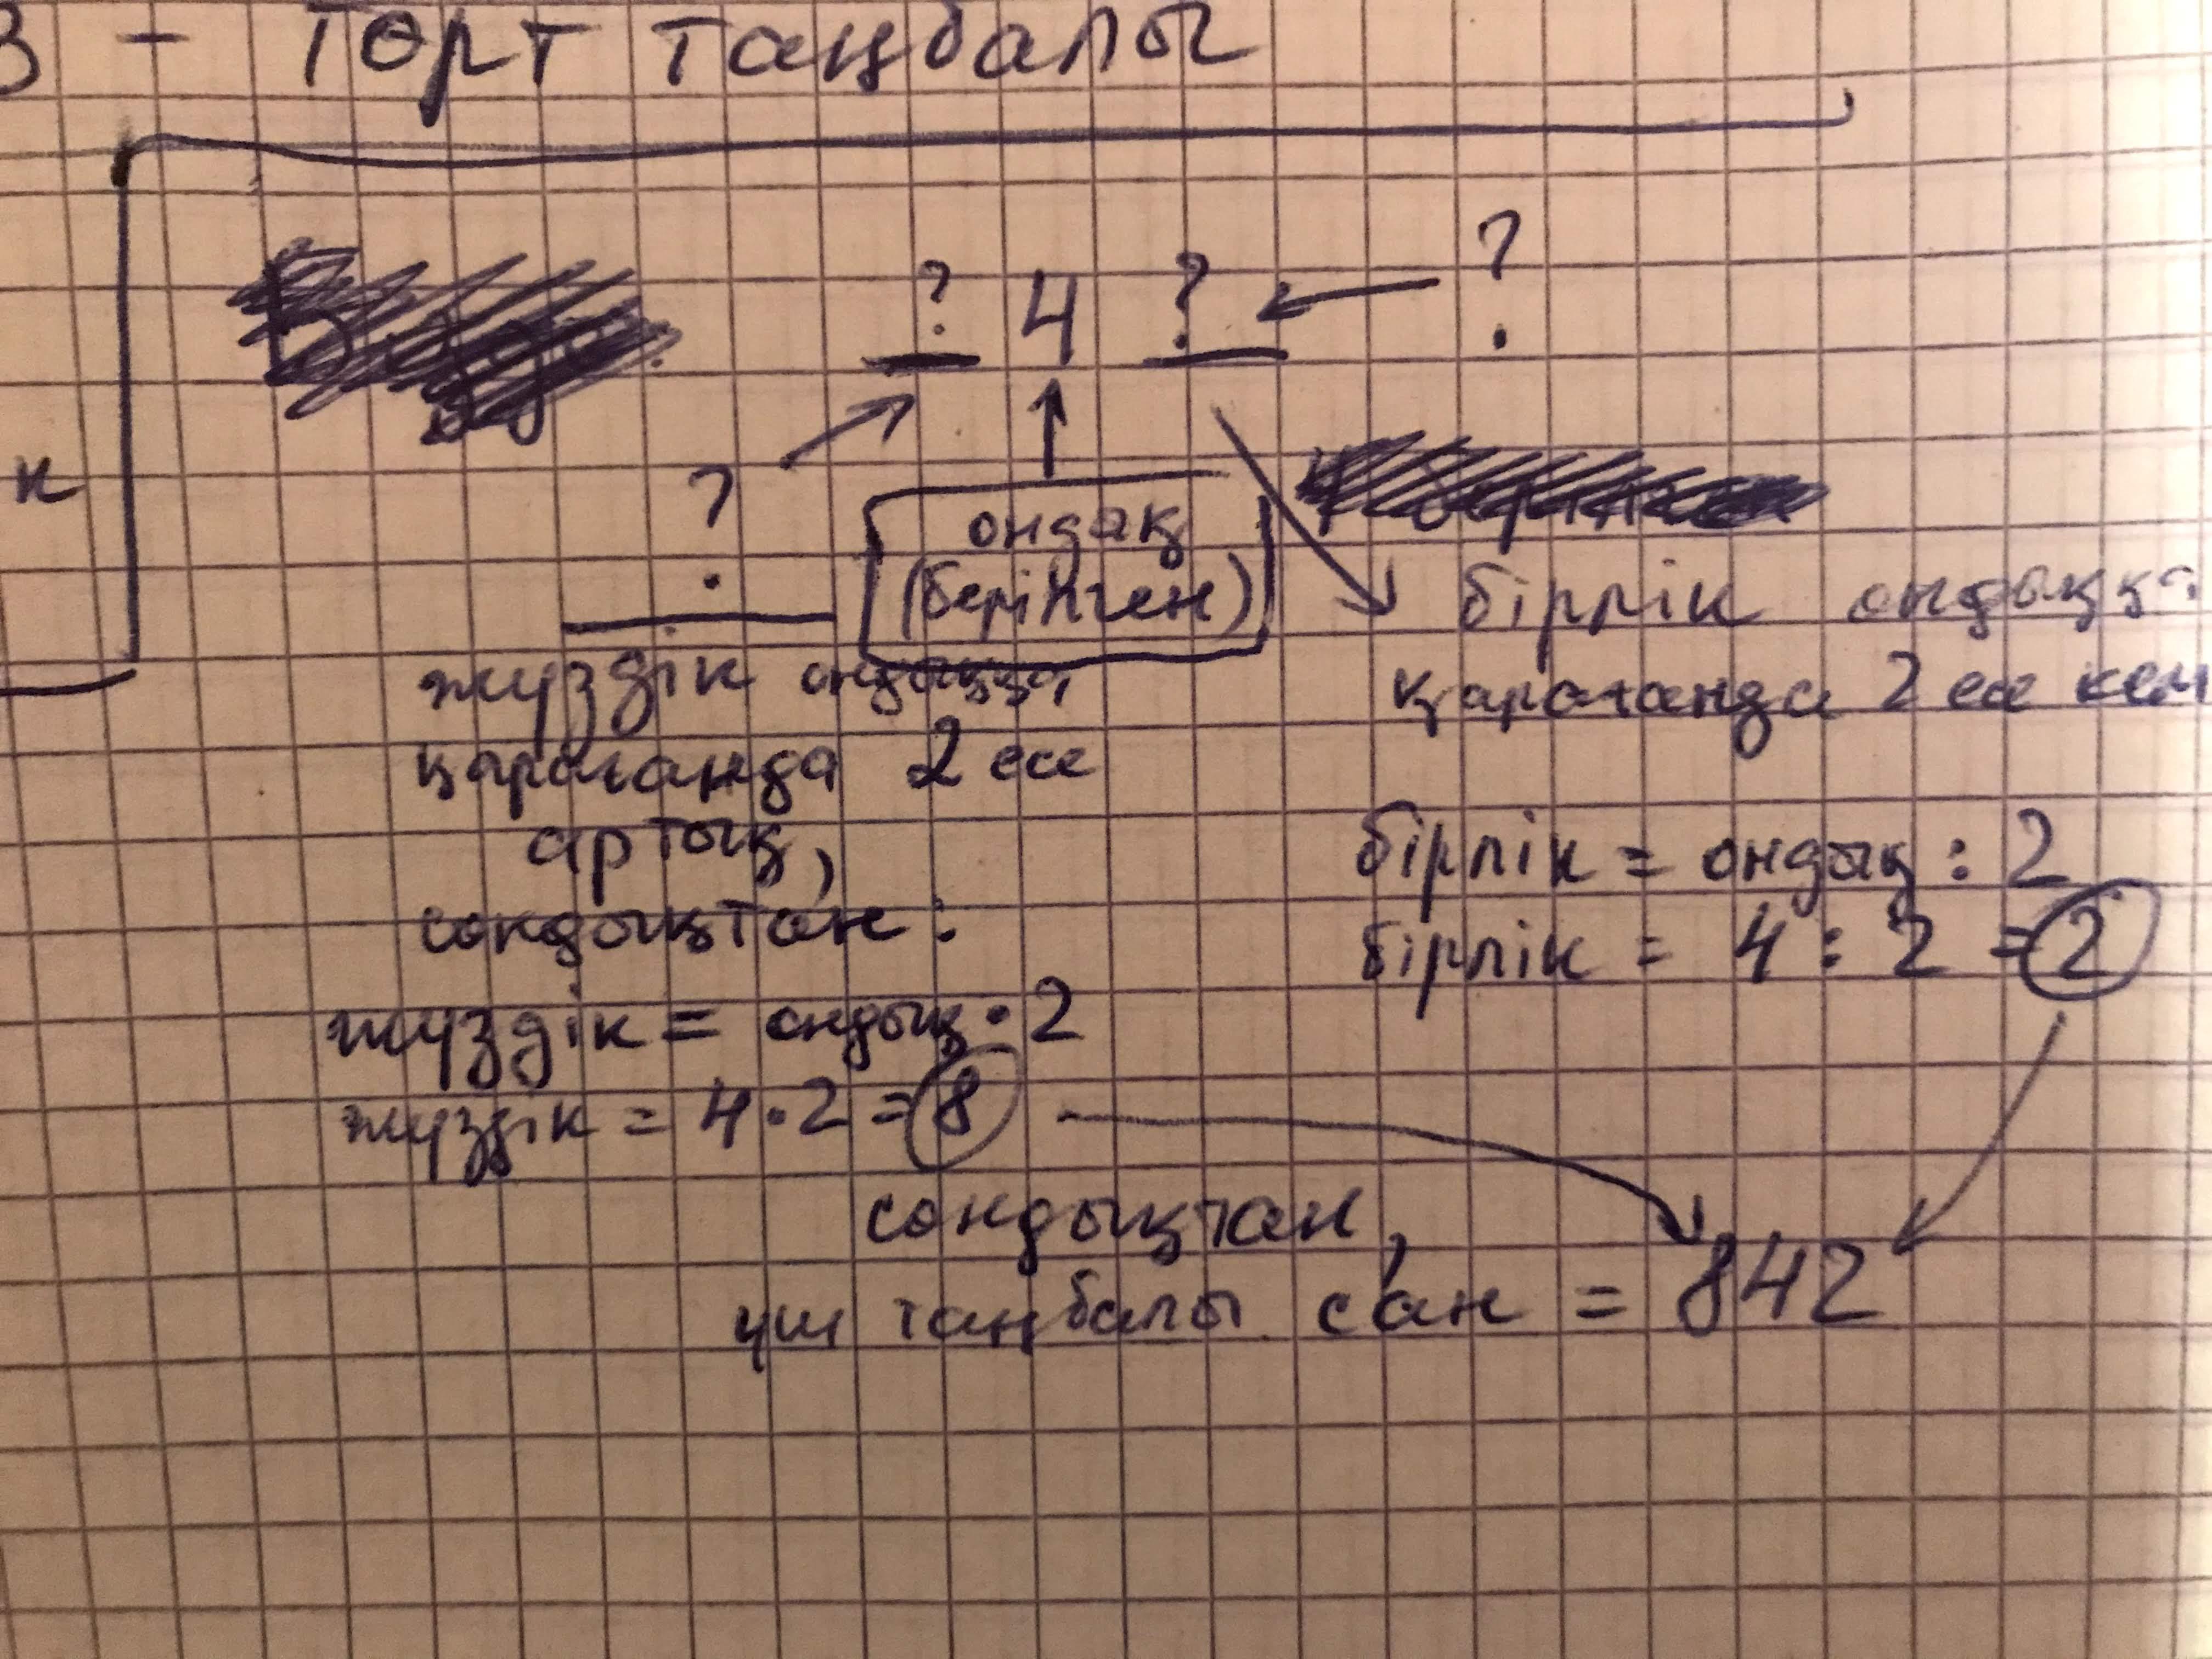 3 - төрт таңбалы
? 4 ? ?
к
?
ондық
(берілген)
жүздік ондыққа
қарағанда 2 есе
артық,
сондықтан:
жүздік = ондық · 2
жүздік = 4 · 2 = 8
бірлік ондыққа
қарағанда 2 есе кем
бірлік = ондық : 2
бірлік = 4 : 2 = 2
сондықтан,
үш таңбалы сан = 842